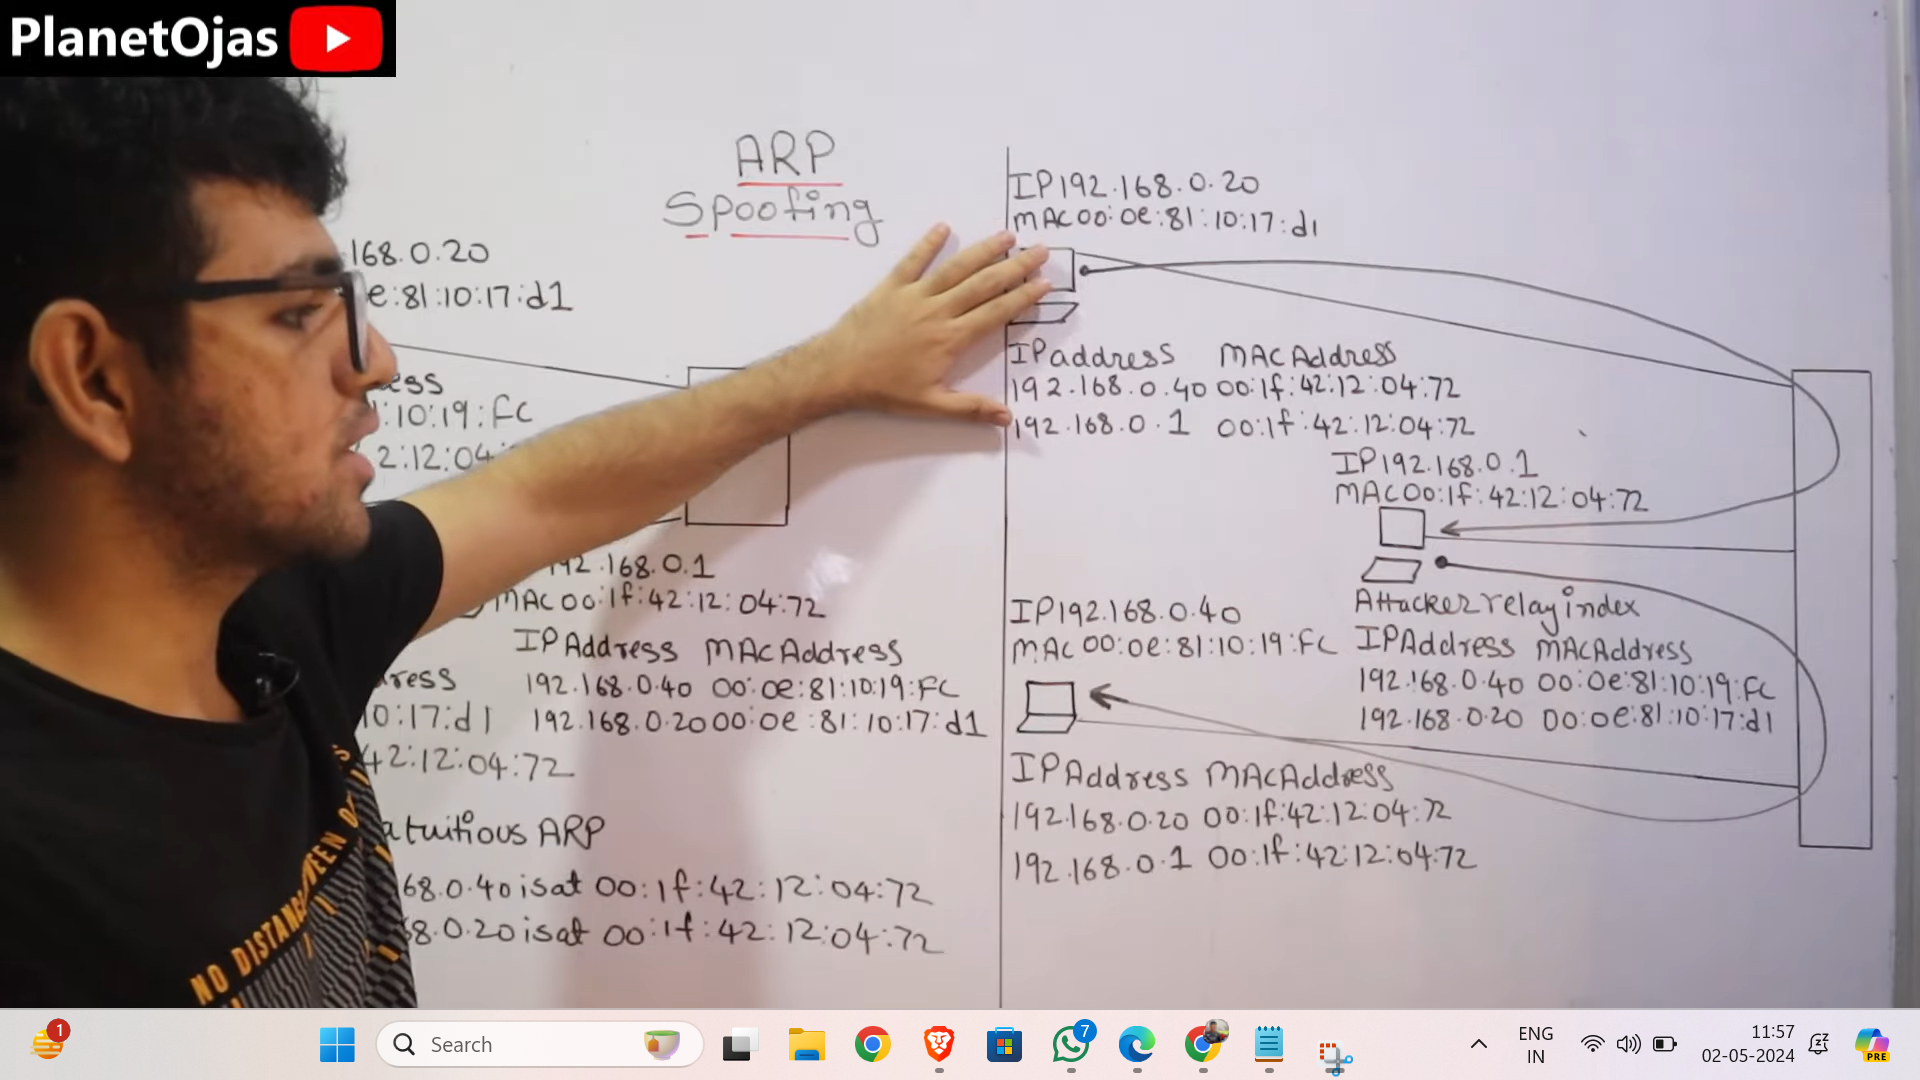 PlanetOjas
ARP
Spoofing
168.0.20
e:81:10:17:d1
ess
:10:19:FC
2:12:04:
192.168.0.1
MAC00:1f:42:12:04:72
IPAddress MACAddress
192.168.0.40 00:0e:81:10:19:FC
192.168.0.20 00:0e:81:10:17:d1
ress
10:17:d1
42:12:04:72
atuitious ARP
68.0.40 is at 00:1f:42:12:04:72
68.0.20 is at 00:1f:42:12:04:72
IP192.168.0.20
MAC00:0e:81:10:17:d1
IPaddress MACAddress
192.168.0.40 00:1f:42:12:04:72
192.168.0.1 00:1f:42:12:04:72
IP192.168.0.1
MAC00:1f:42:12:04:72
Attacker relay index
IPAddress MACAddress
192.168.0.40 00:0e:81:10:19:FC
192.168.0.20 00:0e:81:10:17:d1
IP192.168.0.40
MAC00:0e:81:10:19:FC
IPAddress MACAddress
192.168.0.20 00:1f:42:12:04:72
192.168.0.1 00:1f:42:12:04:72
NO DISTANCE BETWEEN
1
Search
7
ENG
IN
11:57
02-05-2024
PRE